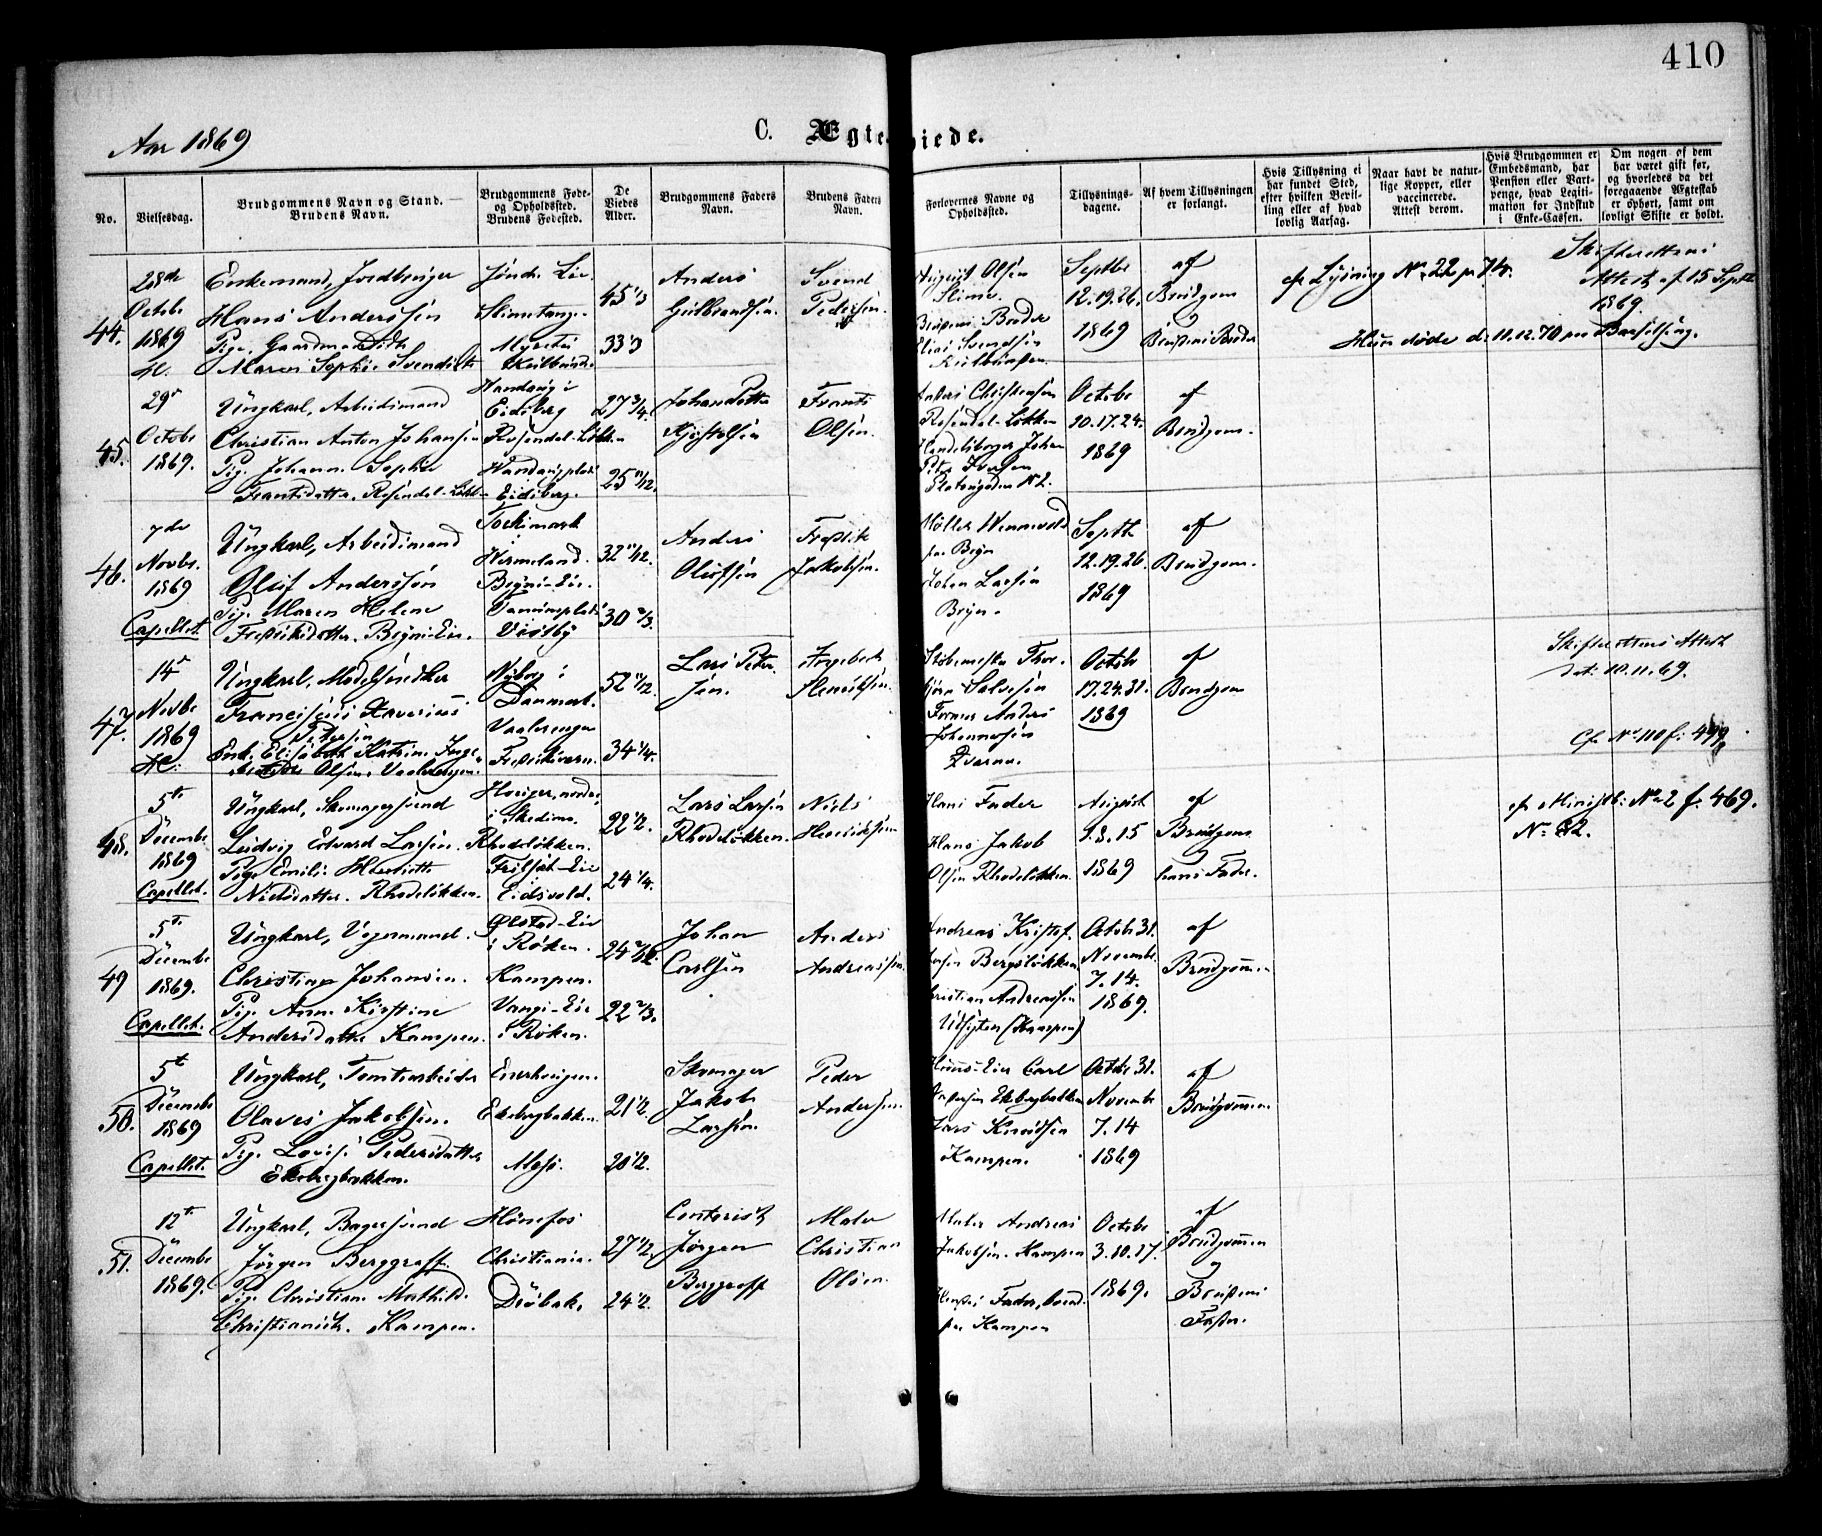 410
Aar 1869
C. Ægteviede.
No.
Vielsesdag.
Brudgommens Navn og Stand. —
Brudens Navn.
Brudgommens Føde-
og Opholdssted.
Brudens Fødested.
De
Viedes
Alder.
Brudgommens Faders
Navn.
Brudens Faders
Navn.
Forlovernes Navne og
Opholdssted.
Tillysnings-
dagene.
Af hvem Tillysningen
er forlangt.
Hvis Tillysning ei
har fundet Sted,
efter hvilken Bevil-
ling eller af hvad
lovlig Aarsag.
Naar havt de natur-
lige Kopper, eller
vaccinerede.
Attest derom.
Hvis Brudgommen er
Embedsmand, har
Pension eller Vart-
penge, hvad Legiti-
mation for Indskud
i Enke-Cassen.
Om nogen af dem
har været gift før,
og hvorledes da det
foregaaende Ægteskab
er ophørt, samt om
lovligt Skifte er holdt.
44.
28de
Octobr
1869
Enkemand, Jordbruger
Hans Anderssen
Pige, Gaardmandsdtr
Maren Sophie Svendsdtr
45 1/3
33 1/3
Anders
Gulbrandsen.
Svend
Pedersen.
August Olsen
Brudens Broder
Elias Svendsen
Septbr
12.19.26.
1869
af
Brudgom.
og
Brudens Broder
cfr Lysning No 22 pr 74.
Skifterettens
Attest af 15 Septb
1869.
Hun døde d: 11.12.70 paa Barselseng.
45.
29de
Octobr
1869.
Ungkarl, Arbeidsmand
Christian Anton Johansen
Pige Johanne Sophie
Frantsdatter, Rosendal-Løkk
Eidsberg
Rosendal-Løkken
Eidsberg.
27 3/4.
25 11/12.
Frants
Olsen.
Anders Christensen
Rosendal-Løkken
Platousgaden No 2.
Octobr
10.17.24.
1869
af
Brudgom.
46.
7de
Novbr.
1869
Capellet.
Ungkarl, Arbeidsmand
Oluf Anderssen
Pige Maren Helene
Fredriksdatter. Bryns-Eie.
Vermeland.
Bryns-Eie.
Vestby
32 11/12.
30 2/3.
Anders
Olufsen
Fredrik
Jakobsen.
Møller Wennevold
paa Bryn
Johan Larsen
Bryn.
Septb
12.19.26.
1869
af
Brudgom.
47.
14de
Novbr
1869
Ungkarl, Modelsnedker
Franciscus Xaverius
Petersen
Enke Elisabeth Katrine Inge-
Olsen. Vaalerengen
Nyborg i
Danmark.
Vaalerengen
Fredriksværn.
52 11/12.
34 1/4.
Lars Peter-
sen.
Ingebret
Henriksen.
Former Anders
Johannesen
Kværner.
Octobr
17.24.31.
1869
af
Brudgom
Skifterettens Attest
dat: 10.11.69.
Cfr No 110 f: 499.
48.
5te
Decembr
1869
Capellet.
Ungkarl, Skomagersvend
Ludvig Edvard Larsen. Rhodeløkken.
Pige Emilie Henriette
Nielsdatter. Rhodeløkken.
i Skedsmo.
Eidsvold.
22 1/2.
24 1/4.
Lars Larsen
Rhodeløkken.
Niels
Henriksen
Hans Fader
Hans Jakob
Olsen Rhodeløkken.
August
1.8.15
1869
af
Brudgom
hans Fader.
cfr Ministb: No 2 f. 469.
No 82.
49
5te
Decembr
1869.
Capellet.
Ungkarl, Vognmand.
Christian Johansen.
Pige Anne Kirstine
Andersdatter Kampen.
i Røken.
Kampen.
Vangs-Eie
i Røken.
22 2/3.
Johan
Carlsen
Anders
Andreassen.
Andreas Kristof-
fersen Bergsløkken
Christian Andreassen
Udsigten (Kampen)
Octobr 31.
Novembr
7.14.
1869.
af
Brudgommen
50.
5te
Decembr
1869
Capellet.
Ungkarl, Tomtearbeider
Olaves Jakobsen.
Pige Lovise Pedersdatter
Ekebergbakken.
Enerhougen.
Ekebergbakken.
Moss.
21 1/2.
20 1/2.
Skomager
Jakob
Larsen.
Peder
Andersen.
Huus-Eier Carl
Ekebergbakken
Lars Knudsen
Kampen.
Octobr 31.
Novembr
7.14
1869
af
Brudgommen
51.
12te
Decembr
1869.
Ungkarl, Bagersvend
Jørgen Berggraff.
Pige Christiane Mathilde
Christiansdtr. Kampen.
Hønefos
Christiania.
Drøbak.
27 1/2.
24 1/2.
Contorist
Jørgen
Berggraff
Maler
Christian
Olsen.
Maler Andreas
Jakobsen. Kampen
Brudens Fader, boend.
paa Kampen
Octobr
3.10.17.
1869.
af
Brudgommen
og
Brudens
Fader.